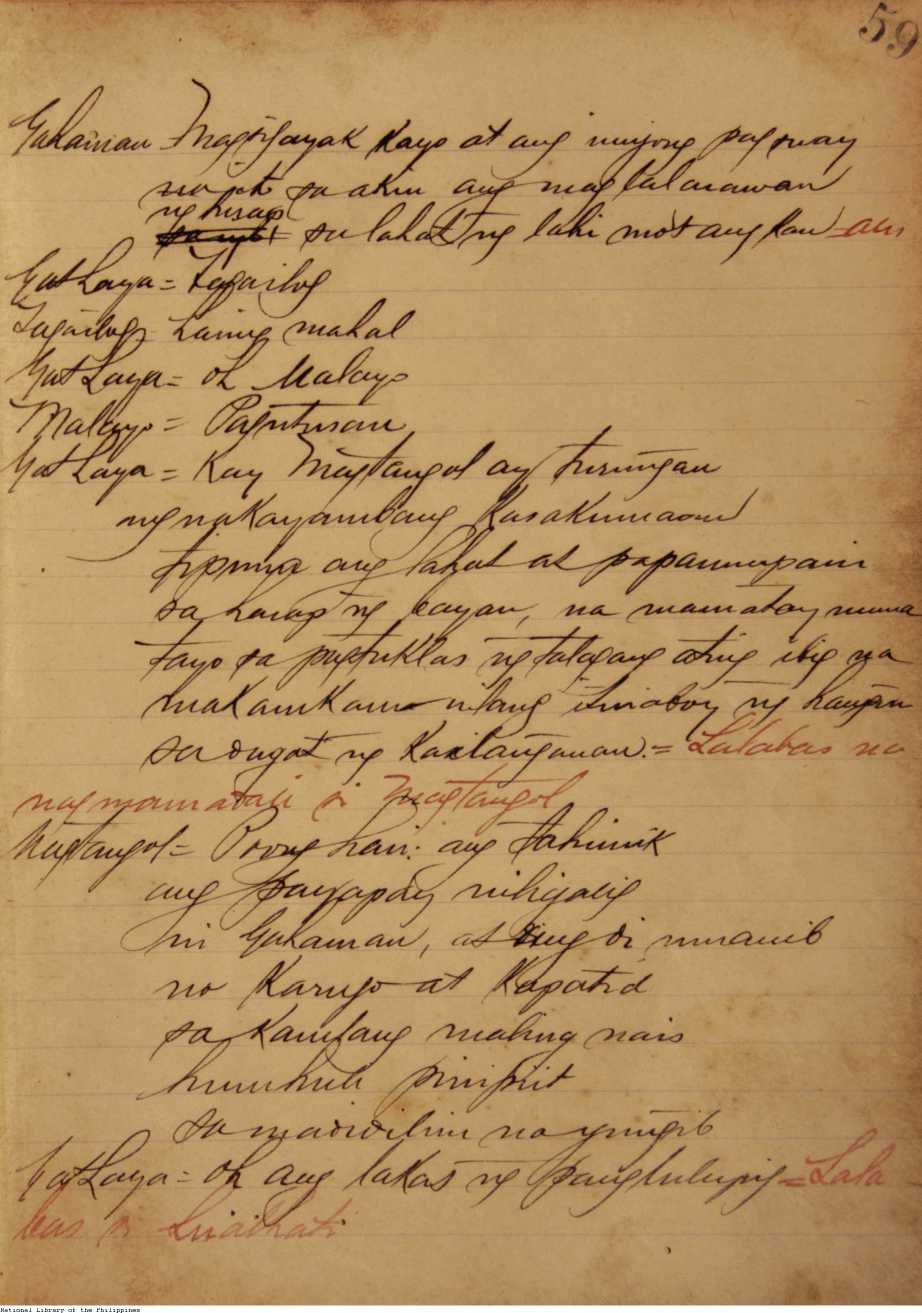 59
Gahaman Magsigayak kayo at ang inyong pag suay
na ito sa akin ang maglalarawan
ng hirap
sa lahat ng lahi mo't angkan =
Gat Laya = Tagailog
Tagailog = Haring mahal
Gat Laya = Oh Malayo
Malayo = Pagutusan
Gat Laya = Kay Magtangol ay turingan
ng nakayambang Kasakunaan
tipnin ang lahat at papanumpain
sa harap ng bayan, na mamatay muna
tayo sa pagtuklas ng talagang ating ibig na
makamkam nilang isinaboy ng hangin
sa dugat ng Kailanganan. = Lalabas na
nagmamadali si Magtangol
Magtangol = Poong hari: ang tahimik
ang payapa'y niligalig
ni Gahaman, at ang di umanib
na Karugo at Kapatid
sa kanilang maling nais
hinuhuli pinipiit
sa madidilim na yungib
Gat Laya = Oh ang lakas ng panglulupig = Lala
bas si Liwalhati
National Library of the Philippines